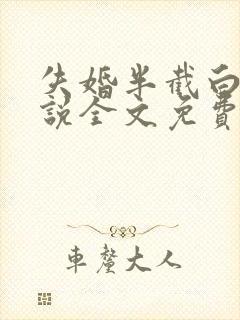 失婚半截白
說全文免費
車釐大人